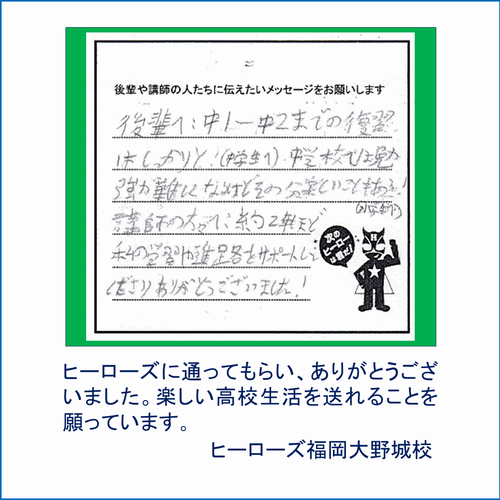 後輩や講師の人たちに伝えたいメッセージをお願いします
後輩へ:中1~中2までの復習
はしっかりと!(中学生へ)中学校では勉
強が難しくなるけどその分楽しいことも
講師の方へ:約2年ほど
私の学習や進路をサポートして
くださりありがとうございました!
次の
ヒーロー
は君だ!
H
ヒーローズに通ってもらい、ありがとうござ
いました。楽しい高校生活を送れることを
願っています。
ヒーローズ福岡大野城校